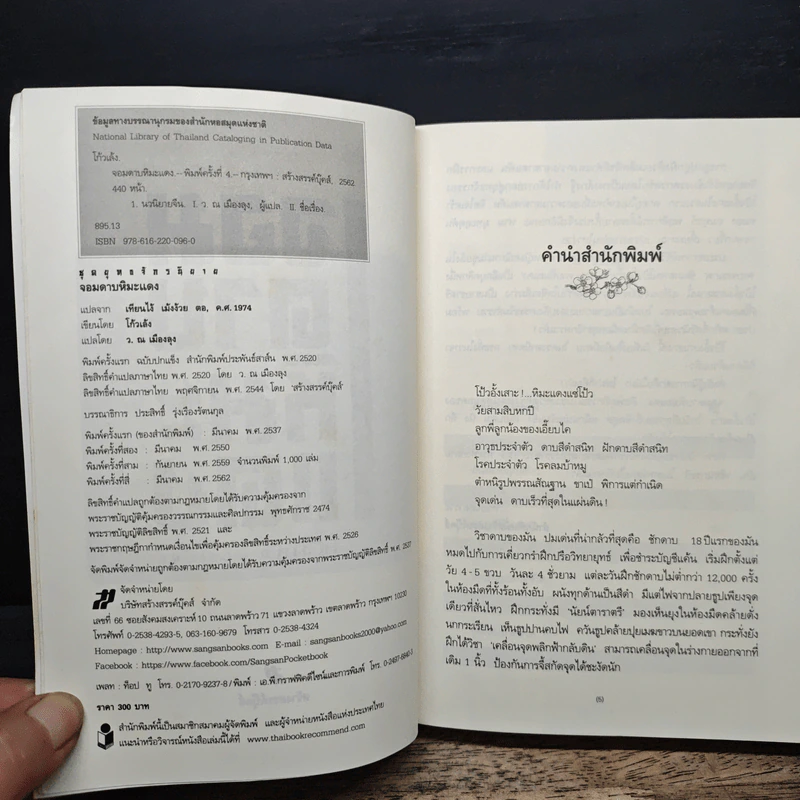 ข้อมูลทางบรรณานุกรมของสำนักหอสมุดแห่งชาติ
National Library of Thailand Cataloging in Publication Data
โก้วเล้ง.
จอมดาบหิมะแดง.--พิมพ์ครั้งที่ 4.--กรุงเทพฯ : สร้างสรรค์บุ๊คส์, 2562
440 หน้า.
1. นวนิยายจีน. I. ว. ณ เมืองลุง, ผู้แปล. II. ชื่อเรื่อง.
895.13
ISBN 978-616-220-096-0
ชุดยุทธจักรนิยาย
จอมดาบหิมะแดง
แปลจาก เทียนไง้ เม้งง้วย ตอ, ค.ศ. 1974
เขียนโดย โก้วเล้ง
แปลโดย ว. ณ เมืองลุง
พิมพ์ครั้งแรก ฉบับปกแข็ง สำนักพิมพ์ประพันธ์สาส์น พ.ศ. 2520
ลิขสิทธิ์คำแปลภาษาไทย พ.ศ. 2520 โดย ว. ณ เมืองลุง
ลิขสิทธิ์คำแปลภาษาไทย พฤศจิกายน พ.ศ. 2544 โดย 'สร้างสรรค์บุ๊คส์'
บรรณาธิการ ประสิทธิ์ รุ่งเรืองรัตนกุล
พิมพ์ครั้งแรก (ของสำนักพิมพ์) : มีนาคม พ.ศ. 2537
พิมพ์ครั้งที่สอง : มีนาคม พ.ศ. 2550
พิมพ์ครั้งที่สาม : กันยายน พ.ศ. 2559 จำนวนพิมพ์ 1,000 เล่ม
พิมพ์ครั้งที่สี่ : มีนาคม พ.ศ. 2562
ลิขสิทธิ์คำแปลถูกต้องตามกฎหมายโดยได้รับความคุ้มครองจาก
พระราชบัญญัติคุ้มครองวรรณกรรมและศิลปกรรม พุทธศักราช 2474
พระราชบัญญัติลิขสิทธิ์ พ.ศ. 2521 และ
พระราชกฤษฎีกากำหนดเงื่อนไขเพื่อคุ้มครองลิขสิทธิ์ระหว่างประเทศ พ.ศ. 2526
จัดพิมพ์จัดจำหน่ายถูกต้องตามกฎหมายโดยได้รับความคุ้มครองจากพระราชบัญญัติลิขสิทธิ์ พ.ศ. 2537
จัดจำหน่ายโดย
บริษัทสร้างสรรค์บุ๊คส์ จำกัด
เลขที่ 66 ซอยสังคมสงเคราะห์ 10 ถนนลาดพร้าว 71 แขวงลาดพร้าว เขตลาดพร้าว กรุงเทพฯ 10230
โทรศัพท์ 0-2538-4293-5, 063-160-9679 โทรสาร 0-2538-4324
Homepage : http://www.sangsanbooks.com E-mail : sangsanbooks2000@yahoo.com
Facebook : https://www.facebook.com/SangsanPocketbook
เพลท : ท็อป ทู โทร. 0-2170-9237-8 / พิมพ์ : เอ.พี.กราฟฟิคดีไซน์และการพิมพ์ โทร. 0-2497-6840-3
ราคา 300 บาท
สำนักพิมพ์นี้เป็นสมาชิกสมาคมผู้จัดพิมพ์ และผู้จำหน่ายหนังสือแห่งประเทศไทย
แนะนำหรือวิจารณ์หนังสือเล่มนี้ได้ที่ www.thaibookrecommend.com
คำนำสำนักพิมพ์
โป้วอั้งเสาะ !...หิมะแดงแซ่โป้ว
วัยสามสิบหกปี
ลูกพี่ลูกน้องของเอี๊ยบไค
อาวุธประจำตัว ดาบสีดำสนิท ฝักดาบสีดำสนิท
โรคประจำตัว โรคลมบ้าหมู
ตำหนิรูปพรรณสัณฐาน ขาเป๋ พิการแต่กำเนิด
จุดเด่น ดาบเร็วที่สุดในแผ่นดิน !
วิชาดาบของมัน ปมเด่นที่น่ากลัวที่สุดคือ ชักดาบ 18 ปีแรกของมัน
หมดไปกับการเคี่ยวกรำฝึกปรือวิทยายุทธ์ เพื่อชำระบัญชีแค้น เริ่มฝึกตั้งแต่
วัย 4-5 ขวบ วันละ 4 ชั่วยาม แต่ละวันฝึกชักดาบไม่ต่ำกว่า 12,000 ครั้ง
ในห้องมืดที่ทั้งร้อนทั้งอับ ผนังทุกด้านเป็นสีดำ มีแต่ไฟจากปลายธูปเพียงจุด
เดียวที่สั่นไหว ฝึกกระทั่งมี 'นัยน์ตาราตรี' มองเห็นยุงในห้องมืดคล้ายดั่ง
นกกระเรียน เห็นธูปปานคบไฟ ควันธูปคล้ายปุยเมฆขาวบนยอดเขา กระทั่งยัง
ฝึกได้วิชา 'เคลื่อนจุดพลิกฟ้ากลับดิน' สามารถเคลื่อนจุดในร่างกายออกจากที่
เดิม 1 นิ้ว ป้องกันการจี้สกัดจุดได้ชะงัดนัก
(5)